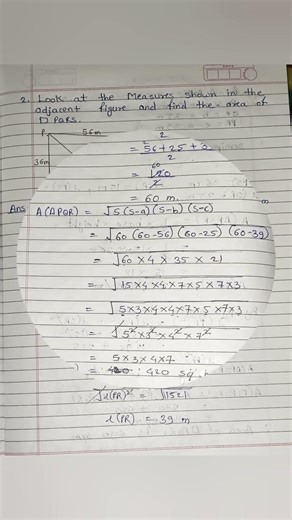 2. Look at the Measures shown in the
adjacent figure and find the area of
□ PQRS.
P 56m
36m
2
= 56 + 25 + 3
2
60
= 120
2
= 60 m.
Ans A(APQR) = √S(S-a)(S-b)(S-c)
= √60 (60-56) (60-25) (60-39)
= √60 × 4 × 35 × 21
= √15 × 4 × 4 × 7 × 5 × 7 × 3
= √5 × 3 × 4 × 4 × 7 × 5 × 7 × 3
= √5² × 3² × 4² × 7²
= 5 × 3 × 4 × 7
= 420 : 420 sq.
√l(PR)² = √1521
l(PR) = 39 m